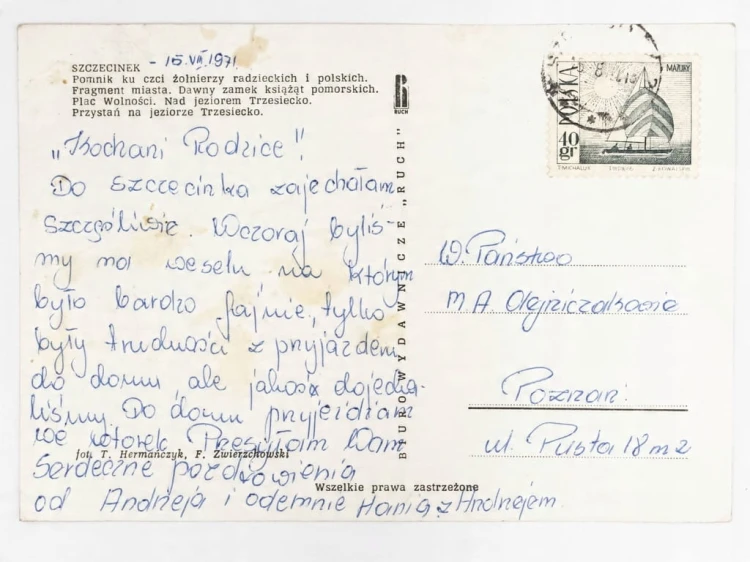 SZCZECINEK - 15.VII.1971
Pomnik ku czci żołnierzy radzieckich i polskich.
Fragment miasta. Dawny zamek książąt pomorskich.
Plac Wolności. Nad jeziorem Trzesiecko.
Przystań na jeziorze Trzesiecko.
RUCH
„Kochani Rodzice"!
Do Szczecinka zajechałam
szczęśliwie. Wczoraj byliś-
my na weselu na którym
było bardzo fajnie, tylko
były trudności z przyjazdem
do domu ale jakoś dojecha-
liśmy. Do domu przyjeżdżam
we wtorek Przesyłam Wam
fot. T. Hermańczyk, F. Zwierzchowski
Serdeczne pozdrowienia
od Andrzeja i odemnie Hania z Andrzejem.
BIURO WYDAWNICZE "RUCH"
Wszelkie prawa zastrzeżone
POLSKA
40 gr
W. Państwo
M A. Olejniczakowie
Poznań
ul. Pusta 18 m 2